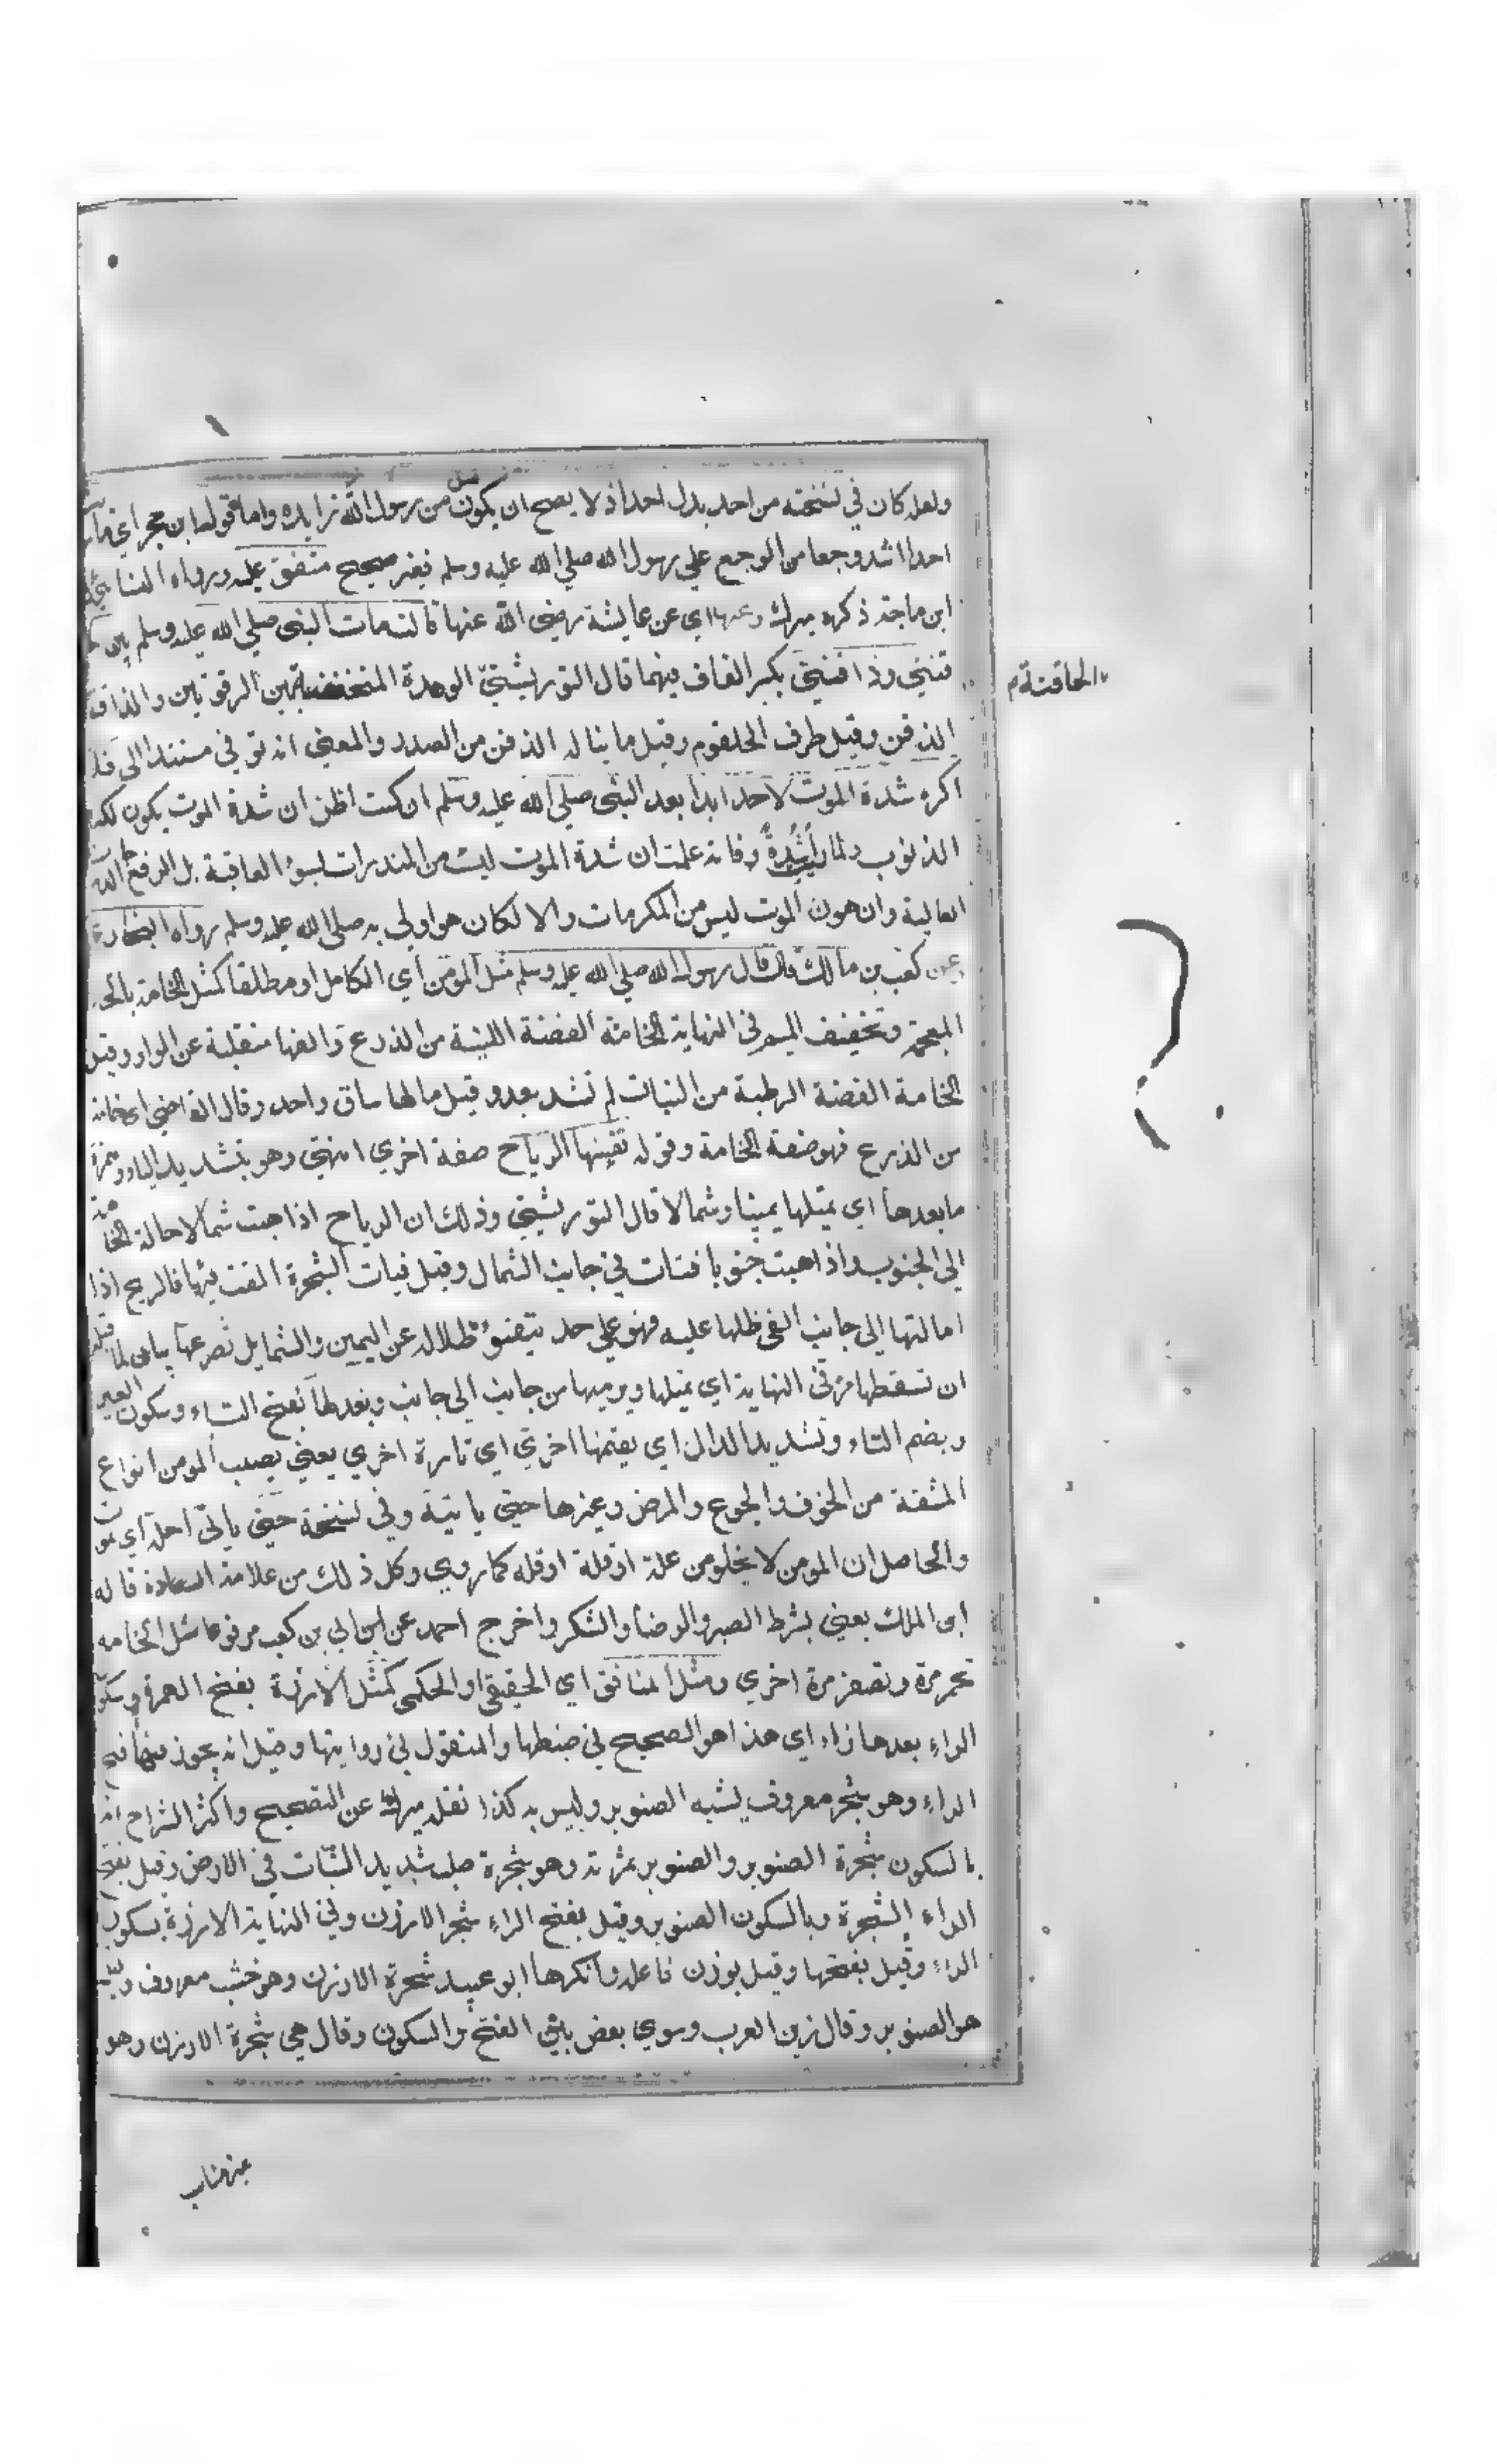 ولعله كان في نسخته من احد بدل احدا اذ لا يصح ان يكون قبل من رسول الله زايدة واما قول ابن حجر اي ما رايت
احدا اشد وجعا من الوجع علي رسول الله صلي الله عليه وسلم فغير صحيح متفق عليه ورواه النسائي
ابن ماجة ذكره ميرك وعنها اي عن عايشة رضي الله عنها قالت مات النبي صلي الله عليه وسلم بين حا
قنتي وذاقنتي بكسر القاف فيهما قال التوربشتي الوهدة المنخفضة بين الترقوتين والذاقنة
الحاقنة م
الذقن وقيل طرف الحلقوم وقيل ما يناله الذقن من الصدر والمعني انه توفي مستندا الي فلا
اكره شدة الموت لاحد ابدا بعد النبي صلي الله عليه وسلم ان كنت اظن ان شدة الموت يكون لكثرة
الذنوب ولما شدة وفاته علمت ان شدة الموت ليست من المنذرات لسوء العاقبة بل لرفع
العالية وان هون الموت ليس من المكرمات والا لكان هو اولي به صلي الله عليه وسلم رواه البخاري
وعن كعب بن مالك قال قال رسول الله صلي الله عليه وسلم مثل المومن اي الكامل او مطلقا كمثل الخامة بالخاء
المعجمة وتخفيف الميم في النهاية الخامة الغضة اللينة من الزرع والفها منقلبة عن الواو وقيل
الخامة الغضة الرطبة من النبات لم تشد بعد وقيل ما لها ساق واحد وقال القاضي اي خامة
من الزرع فهو صفة الخامة وقوله تفيئها الرياح صفة اخري انتهي وهو بتشديد الياء وهمزة
ما بعدها اي تميلها يمينا وشمالا قال التوربشتي وذلك ان الرياح اذا هبت شمالا حالة الخامة
الي الجنوب واذا هبت جنوبا فتات في جانب الشمال وقيل فيات الشجرة القت فيئها فالريح اذا
امالتها الي جانب القي ظلها عليه فهو علي حد يتفيؤ ظلاله عن اليمين والشمايل تصرعها بيان لما قبله
ان تسقطها مرة في النهاية اي تميلها ويرميها من جانب الي جانب وتعدلها بفتح التاء وسكون العين
وبضم التاء وتشديد الدال اي يقيمها اخري اي تارة اخري يعني يصيب المومن انواع
المشقة من الخوف والجوع والمرض وغيرها حتي ياتيه وفي نسخة حتي ياتي اجله اي يموت
والحاصل ان المومن لا يخلو من علة او قلة او ذلة كما روي وكل ذلك من علامة السعادة قاله
ابن الملك يعني بشرط الصبر والرضا والشكر واخرج احمد عن ابن ابي بن كعب مرفوعا مثل الخامه
تحمر مرة وتصفر مرة اخري ومثل المنافق اي الحقيقي او الحكمي كمثل الارزة بفتح الهمزة وسكون
الراء بعدها زاء اي هذا هو الصحيح في ضبطها والمنقول في روايتها وقيل انه يجوز فيها فتح
الراء وهو شجر معروف يشبه الصنوبر وليس به كذا نقله ميرك عن التصحيح واكثر الشراح انه
بالسكون شجرة الصنوبر والصنوبر ثمرته وهو شجرة صلب شديد الثبات في الارض وقيل بفتح
الراء الشجرة وبالسكون الصنوبر وقيل بفتح الراء شجر الارزن وفي النهاية الارزة بسكون
الراء وقيل بفتحها وقيل بوزن فاعله وانكرها ابو عبيد شجرة الارزن وهو خشب معروف وقيل
هو الصنوبر وقال زين العرب وسوي بعض بين الفتح والسكون وقال هي شجرة الارزن وهو